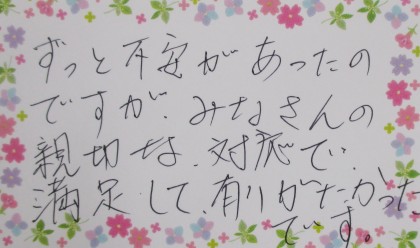 ずっと不安があったの
ですが、みなさんの
親切な、対応で、
満足して、有りがたかった
です。